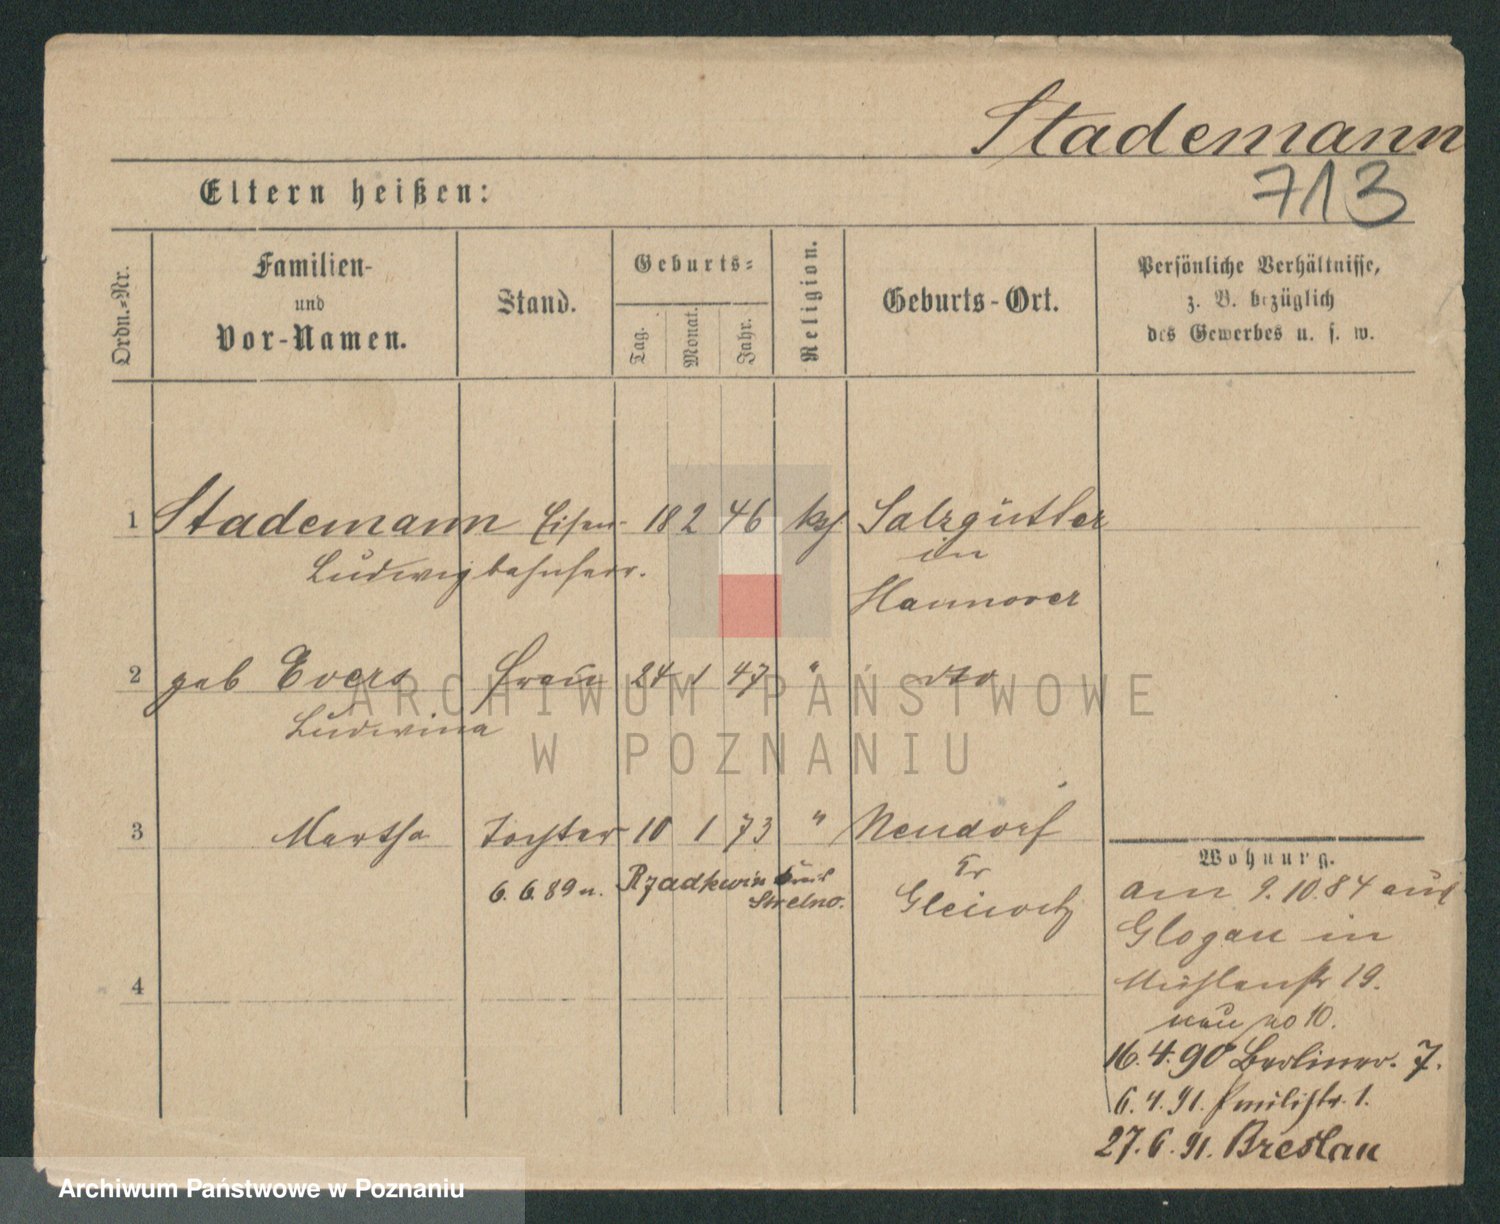 Stademann
713
Eltern heißen:
Ordn.-Nr.
Familien-
und
Vor-Namen.
Stand.
Geburts-
Tag.
Monat.
Jahr.
Religion.
Geburts-Ort.
Persönliche Verhältnisse,
z. B. bezüglich
des Gewerbes u. s. w.
1 Stademann Eisen- 18 2 46 Salzgitter
Ludwig bahnsekr. in
Hannover
2 geb Evers Frau 24 1 47 " dto
Ludwina
3 Martha Tochter 10 1 73 " Neudorf
6. 6. 89 n. Rzadkwin Kreis
Strelno.
Kr
Gleiwitz
4
Wohnung.
am 9. 10. 84 aus
Glogau in
Mühlenstr 19.
neu no 10.
16. 4. 90 Berliner. 7.
6. 4. 91. 1.
27. 6. 91. Breslau
ARCHIWUM PAŃSTWOWE
W POZNANIU
Archiwum Państwowe w Poznaniu